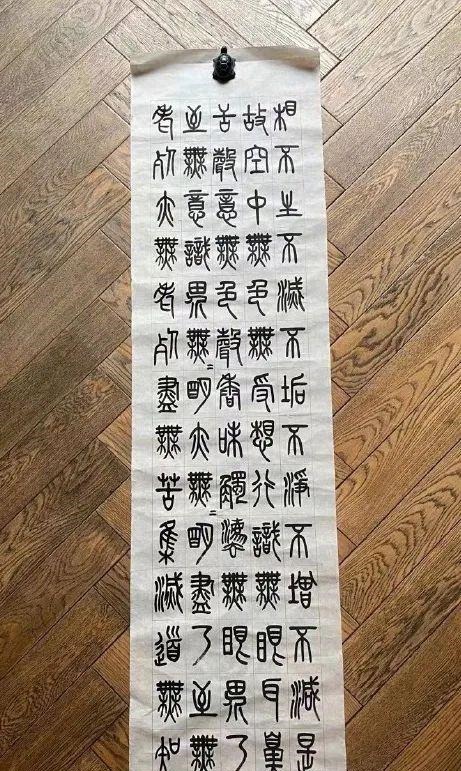 相不生不滅不垢不淨不增不減是
故空中無色無受想行識無眼耳鼻
舌聲意無色聲香味觸法無眼界乃
至無意識界無=明亦無=明盡乃至無
老死亦無老死盡無苦集滅道無知